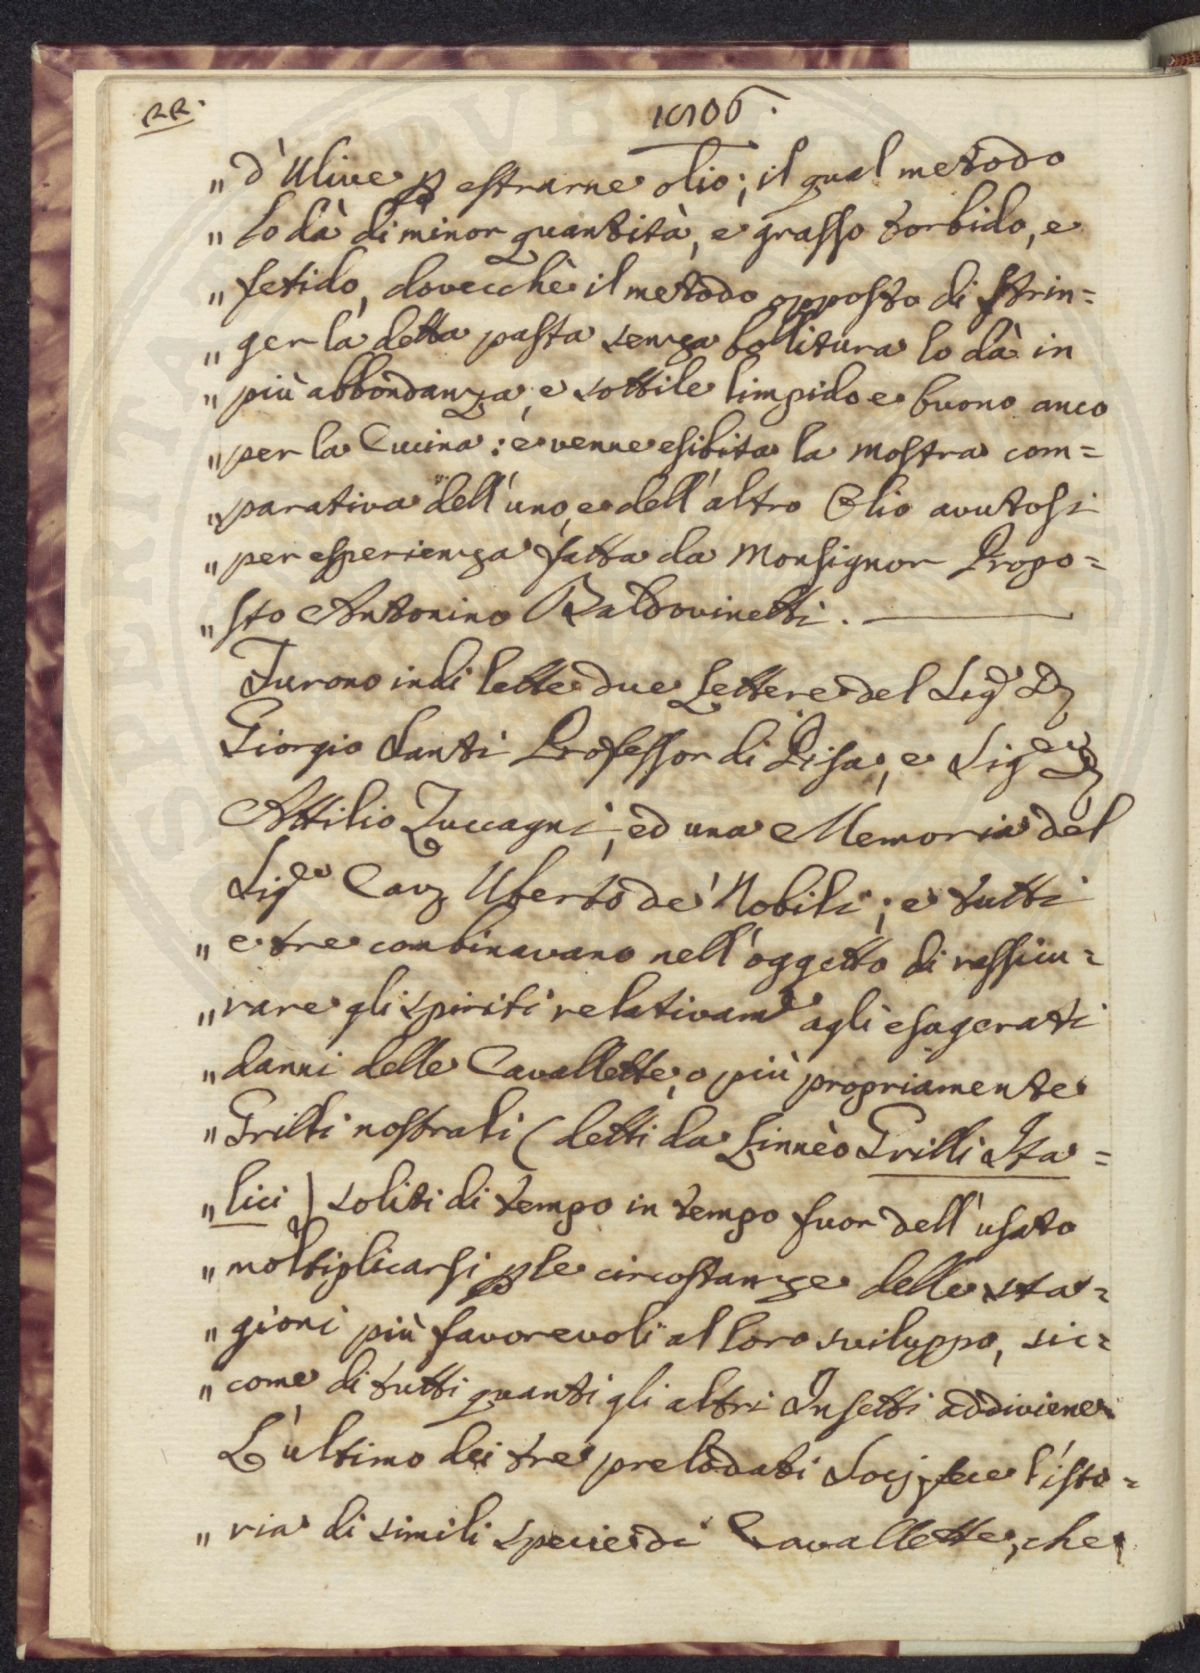 22.
1806.
" d'Ulive p estrarne olio; il qual metodo
" lo dà di minor quantità, e grasso torbido, e
" fetido, dovecchè il metodo opposto di strin=
" ger la detta pasta senza bollitura lo dà in
" più abbondanza, e sottile limpido e buono anco
" per la Cucina: e venne esibita la mostra com=
" parativa dell'uno, e dell'altro Olio avutosi
" per esperienza fatta da Monsignor Propo=
" sto Antonino Baldovinetti.
Furono indi lette due Lettere del Sigr Dr
Giorgio Santi Professor di Pisa, e Sigre Dr
Attilio Zuccagni, ed una Memoria del
Sigre Cavr Uberto de' Nobili; e tutti
" e tre combinavano nell'oggetto di rassicu=
" rare gli spiriti relativamte agli esagerati
" danni delle Cavallette, o più propriamente
" Grilli nostrali (detti da Linnèo Grilli Ita=
" lici) soliti di tempo in tempo fuor dell'usato
" moltiplicarsi p le circostanze delle sta=
" gioni più favorevoli al loro sviluppo, sic=
" come di tutti quanti gli altri Insetti addiviene.
L'ultimo dei tre prelodati Socj fece l'isto=
" ria di simili specie di Cavallette, che